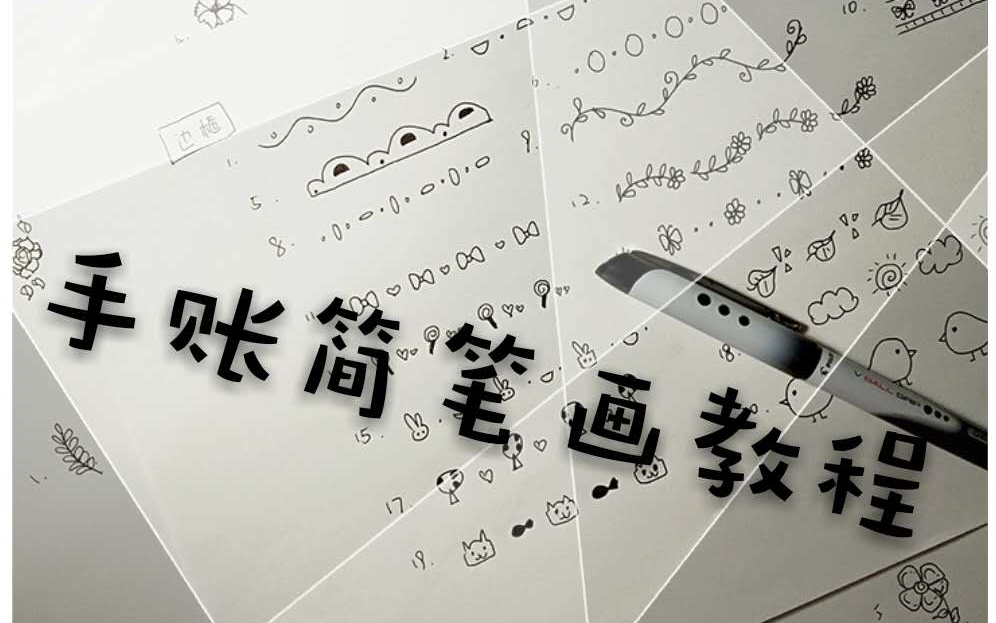 10.
2.
边框
1.
9.
5.
12.
8.
手账简笔画教程
V BALL
18.
15.
17.
19.
1.
5